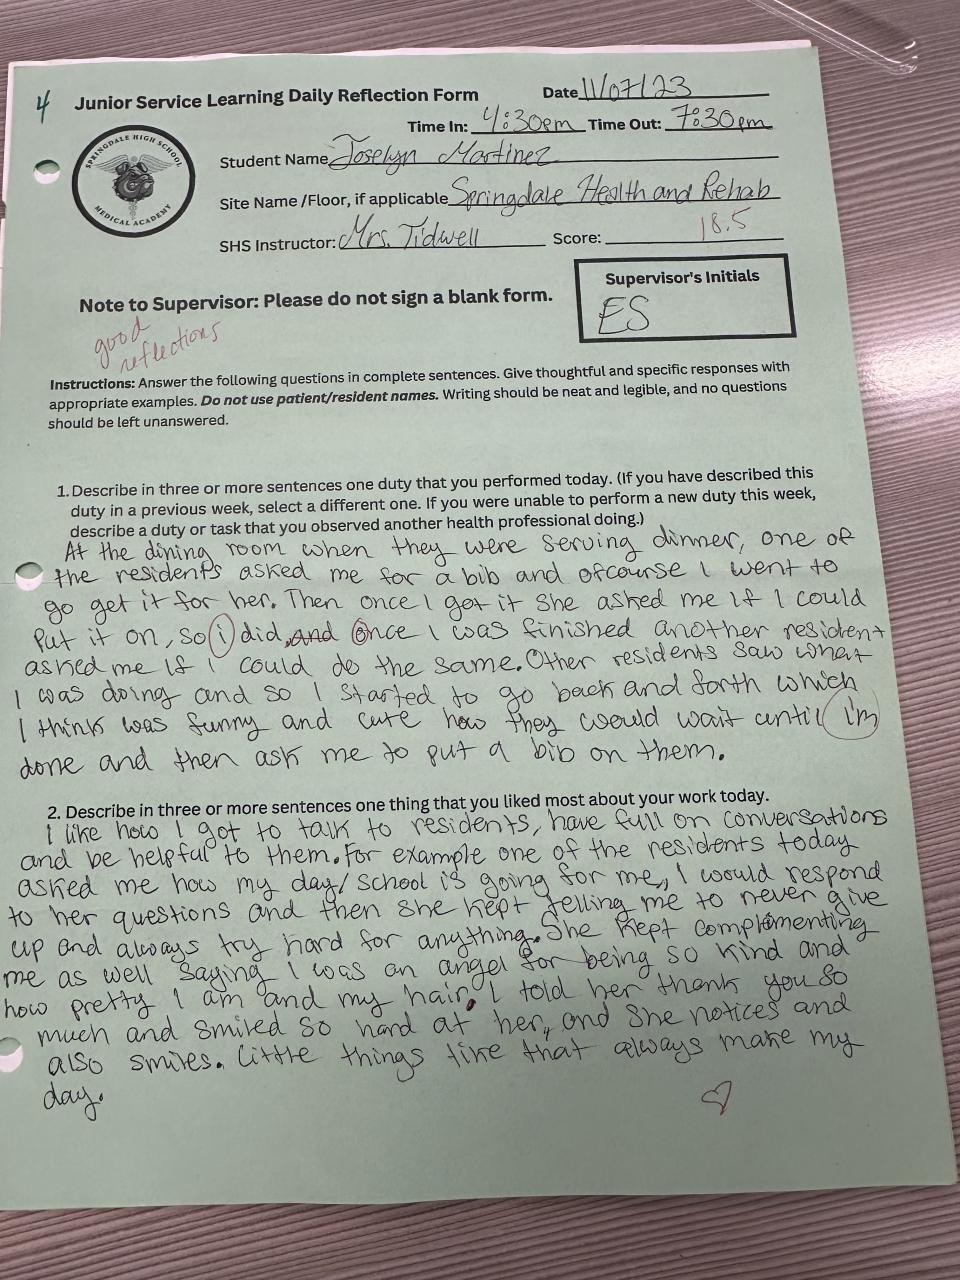 4
Junior Service Learning Daily Reflection Form
Date 11/07/23
Time In: 4:30pm Time Out: 7:30pm
SPRINGDALE HIGH SCHOOL
MEDICAL ACADEMY
Student Name Joselyn Martinez
Site Name /Floor, if applicable Springdale Health and Rehab
SHS Instructor: Mrs. Tidwell Score: 18.5
Note to Supervisor: Please do not sign a blank form.
Supervisor's Initials
ES
good
reflections
Instructions: Answer the following questions in complete sentences. Give thoughtful and specific responses with
appropriate examples. Do not use patient/resident names. Writing should be neat and legible, and no questions
should be left unanswered.
1. Describe in three or more sentences one duty that you performed today. (If you have described this
duty in a previous week, select a different one. If you were unable to perform a new duty this week,
describe a duty or task that you observed another health professional doing.)
At the dining room when they were serving dinner, one of
the residents asked me for a bib and ofcourse I went to
go get it for her. Then once I got it she asked me if I could
put it on, so i did, and once I was finished another resident
asked me if I could do the same. Other residents saw what
I was doing and so I started to go back and forth which
I think was funny and cute how they would wait until i'm
done and then ask me to put a bib on them.
2. Describe in three or more sentences one thing that you liked most about your work today.
I like how I got to talk to residents, have full on conversations
and be helpful to them. For example one of the residents today
asked me how my day/school is going for me, I would respond
to her questions and then she kept telling me to never give
up and always try hard for anything. She kept complementing
me as well saying I was an angel for being so kind and
how pretty I am and my hair. I told her thank you so
much and smiled so hard at her, and she notices and
also smiles. Little things like that always make my
day.